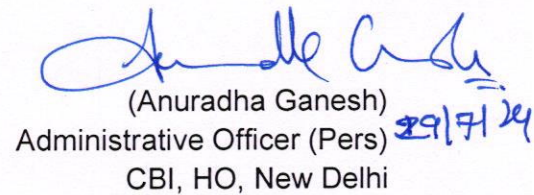 (Anuradha Ganesh)
Administrative Officer (Pers) 29/7/24
CBI, HO, New Delhi